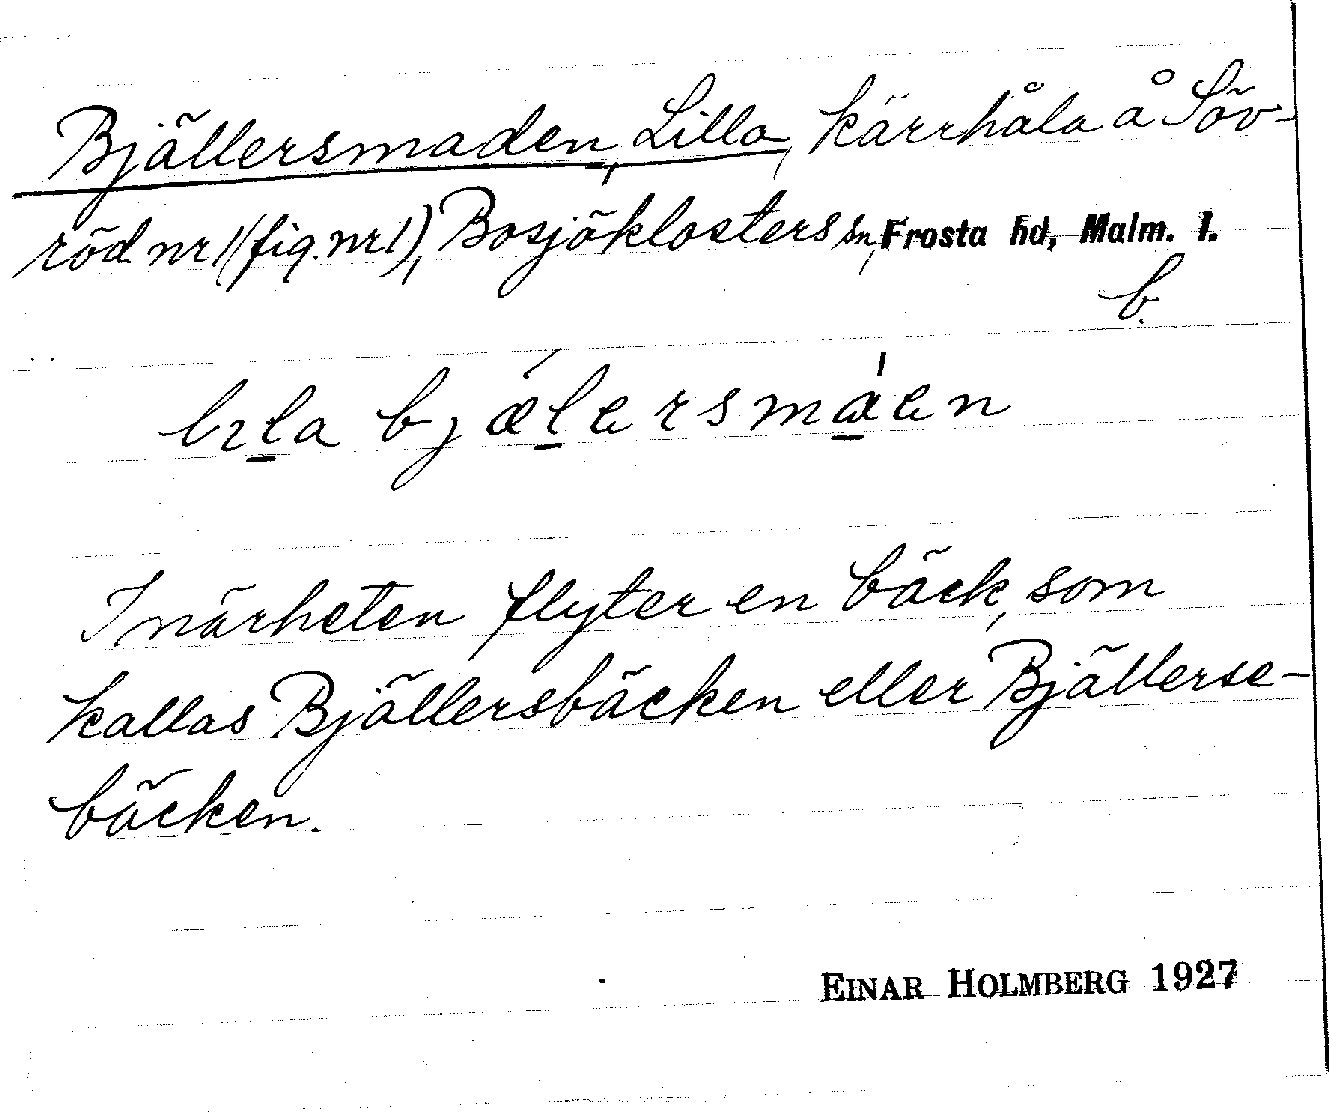 Bjällersmaden, Lilla, kärrhåla å Söv-
röd nr 1 (fig. nr 1), Bosjöklosters sn, Frosta hd, Malm. l.
b.
lɪla bjælersmaen
I närheten flyter en bäck, som
kallas Bjällersbäcken eller Bjällerse-
bäcken.
EINAR HOLMBERG 1927